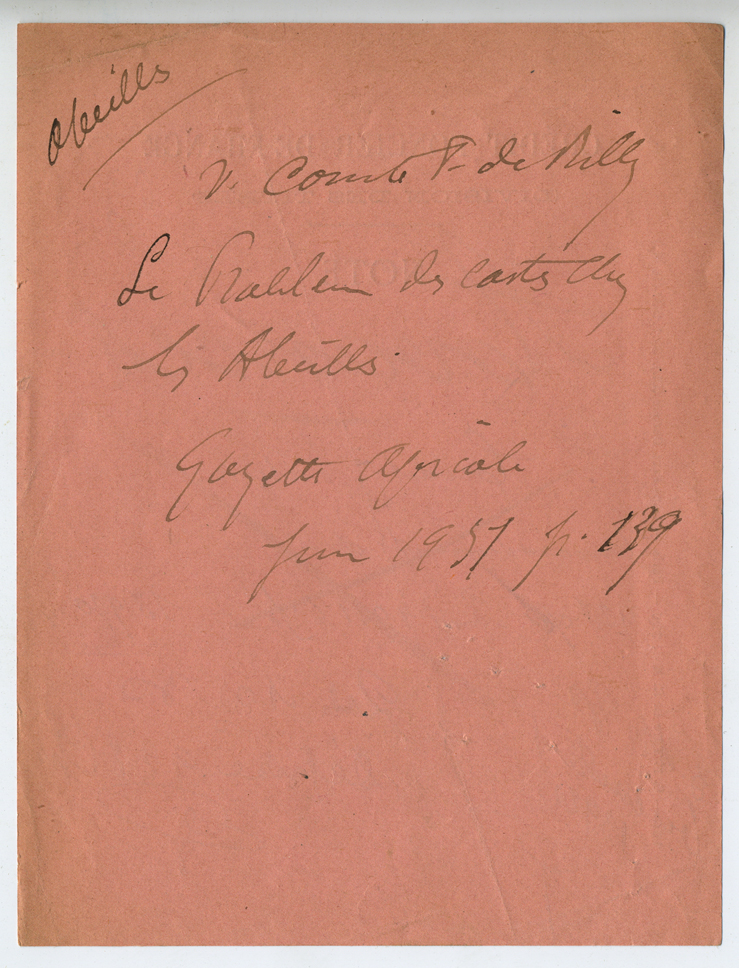 Abeilles
V. Comte F. de Rilly
Le Problem des castes chez
les Abeilles
Gazette Apicole
Juin 1951 p. 139